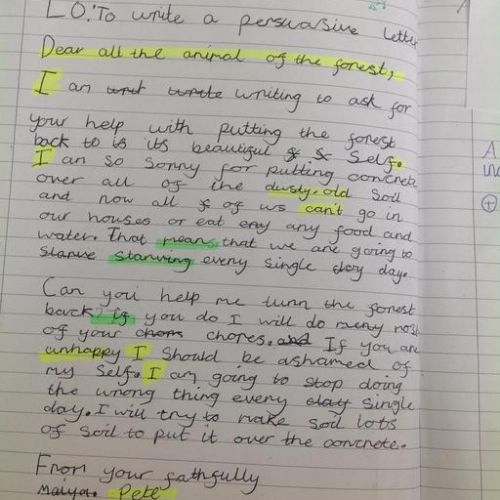 LO: To write a persuasive letter
Dear all the animal of the forest,
I am writing to ask for
your help with putting the forest
back to is its beautiful self.
I am so sorry for putting concrete
over all of the dusty, old soil
and now all of us can't go in
our houses or eat any food and
water. That means that we are going to
starve starving every single day day.
Can you help me turn the forest
back? if you do I will do most
of your chores. and If you are
unhappy I should be ashamed of
my self. I am going to stop doing
the wrong thing every day single
day. I will try to make soil lots
of soil to put it over the concrete.
From your faithfully
Maiya. Pete